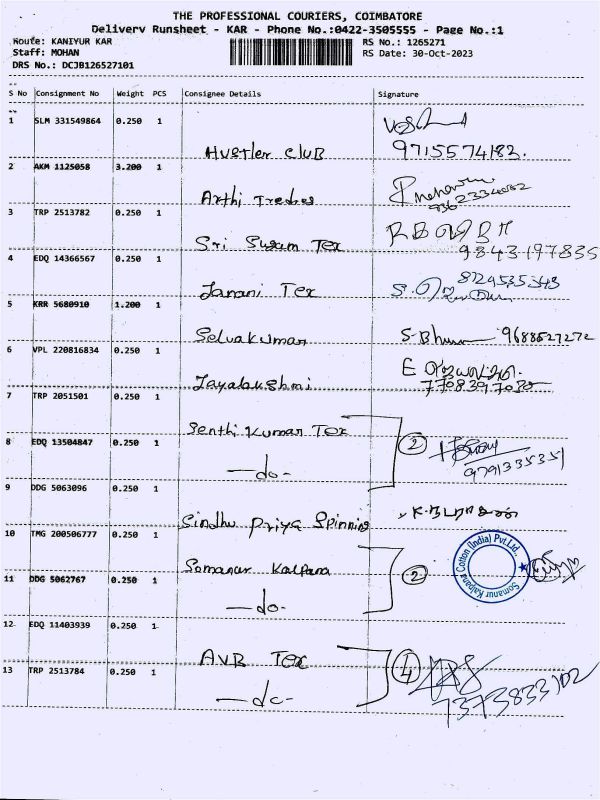 THE PROFESSIONAL COURIERS, COIMBATORE
Delivery Runsheet - KAR - Phone No.:0422-3505555 - Page No.:1
Route: KANIYUR KAR
RS No.: 1265271
Staff: MOHAN
RS Date: 30-Oct-2023
DRS No.: DCJB126527101
S No Consignment No Weight PCS Consignee Details Signature
1 SLM 331549864 0.250 1
Hustler Club 9715574183.
2 AKM 1125058 3.200 1
Arthi Tredres
3 TRP 2513782 0.250 1
Sri Swam Tex 9843197835
4 EDQ 14366567 0.250 1
8124535343
Janani Tex
5 KRR 5680910 1.200 1
Selvakumar S-Bhuma 9688527272
6 VPL 220816834 0.250 1
Jayalakshmi
7 TRP 2051501 0.250 1
Senthi Kumar Tex
8 EDQ 13504847 0.250 1
2
-do- 9791335351
9 DDG 5063096 0.250 1
Sindhu Priya Spinning
10 TMG 200506777 0.250 1
Somanur Kalpana
Somanur Kalpana Cotton (India) Pvt.Ltd.,
11 DDG 5062767 0.250 1
2
-do-
12 EDQ 11403939 0.250 1
AVB Tex
13 TRP 2513784 0.250 1
4
-do- 7373833102